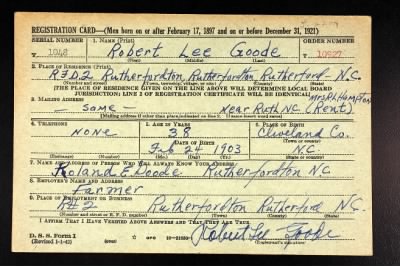 REGISTRATION CARD—(Men born on or after February 17, 1897 and on or before December 31, 1921)
SERIAL NUMBER 1. NAME (Print) ORDER NUMBER
T 1048 Robert Lee Goode T 10927
(First) (Middle) (Last)
2. PLACE OF RESIDENCE (Print)
RFD 2 Rutherfordton Rutherfordton Rutherford N.C.
(Number and street) (Town, township, village, or city) (County) (State)
[THE PLACE OF RESIDENCE GIVEN ON THE LINE ABOVE WILL DETERMINE LOCAL BOARD
JURISDICTION; LINE 2 OF REGISTRATION CERTIFICATE WILL BE IDENTICAL]
Mrs R.L. Hampton
3. MAILING ADDRESS
same Near Ruth NC (Rent)
[Mailing address if other than place indicated on line 2. If same insert word same]
4. TELEPHONE 5. AGE IN YEARS 6. PLACE OF BIRTH
NONE 38 Cleveland Co.
DATE OF BIRTH (Town or county)
Feb 24 1903 N.C.
(Exchange) (Number) (Mo.) (Day) (Yr.) (State or country)
7. NAME AND ADDRESS OF PERSON WHO WILL ALWAYS KNOW YOUR ADDRESS
Roland E Goode Rutherfordton NC
8. EMPLOYER'S NAME AND ADDRESS
Farmer
9. PLACE OF EMPLOYMENT OR BUSINESS
R# 2 Rutherfordton Rutherford N.C.
(Number and street or R. F. D. number) (Town) (County) (State)
I AFFIRM THAT I HAVE VERIFIED ABOVE ANSWERS AND THAT THEY ARE TRUE.
D. S. S. Form 1
(Revised 1-1-42) (over)
Robert Lee Goode
(Registrant's signature)